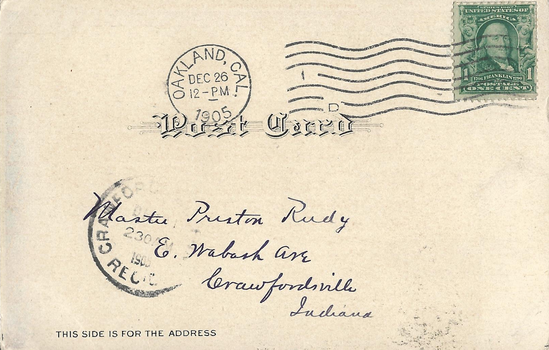 OAKLAND, CAL.
DEC 26
12-PM
1905
UNITED STATES OF
AMERICA
FRANKLIN
1
POSTAGE
ONE CENT
1
D
Post Card
CRAWFORD
REC'D
Master Preston Rudy
E. Wabash Ave
Crawfordsville
Indiana
THIS SIDE IS FOR THE ADDRESS